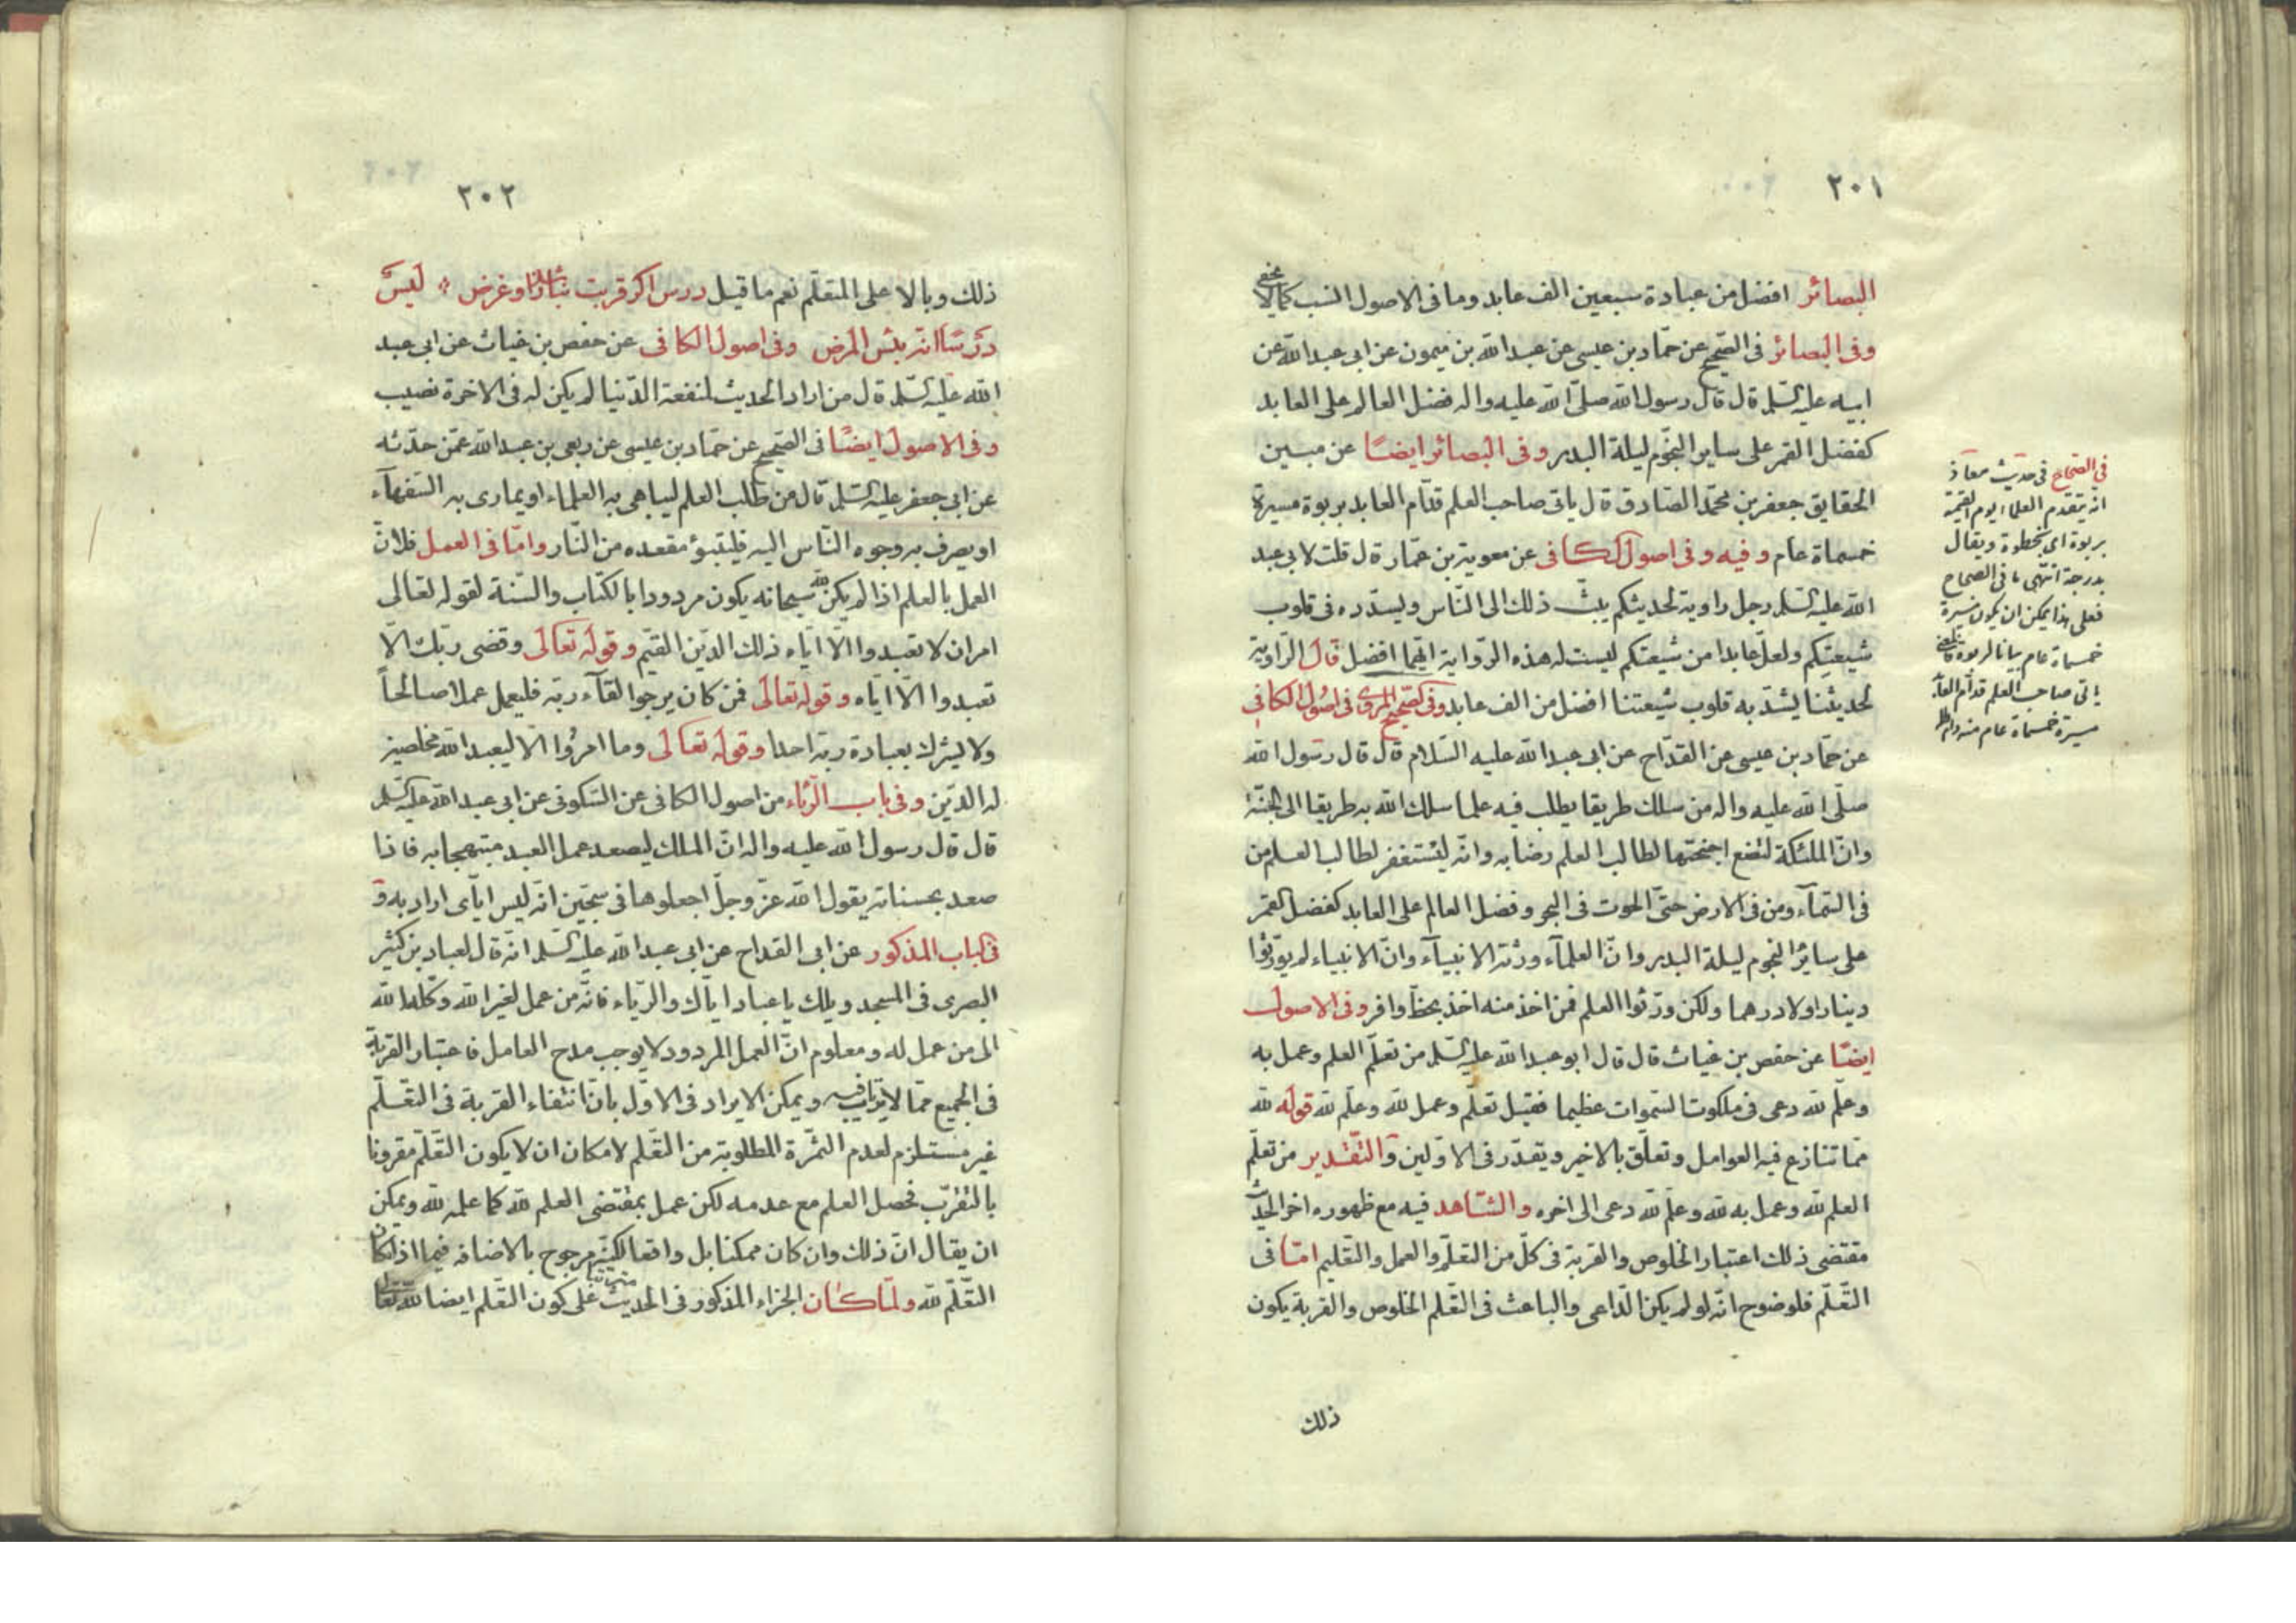 ٢٠١
البصائر افضل من عبادة سبعين الف عابد وما فى الاصول انسب كما لا يخفى
وفى البصائر فى الصحيح عن حماد بن عيسى عن عبد الله بن ميمون عن ابى عبد الله عن
ابيه عليه السلم قال قال رسول الله صلى الله عليه واله فضل العالم على العابد
كفضل القمر على ساير النجوم ليلة البدر وفى البصائر ايضًا عن مبين
الحقايق جعفر بن محمد الصادق قال ياتى صاحب العلم قدّام العابد بربوة مسيرة
خمسماة عام وفيه وفى اصول الكافى عن معوية بن عمّار قال قلت لابى عبد
الله عليه السلم رجل راوية لحديثكم يبثّ ذلك الى الناس ويسدّده فى قلوب
شيعتكم ولعلّ عابدا من شيعتكم ليست له هذه الرّواية ايّهما افضل قال الرّاوية
لحديثنا يشدّ به قلوب شيعتنا افضل من الف عابد وفى الصحيح المروى فى اصول الكافى
عن حمّاد بن عيسى عن القدّاح عن ابى عبد الله عليه السّلام قال قال رسول الله
صلّى الله عليه واله من سلك طريقا يطلب فيه علما سلك الله به طريقا الى الجنّة
وانّ الملئكة لتضع اجنحتها لطالب العلم رضا به وانّه ليستغفر لطالب العلم من
فى السّمآء ومن فى الارض حتّى الحوت فى البحر وفضل العالم على العابد كفضل القمر
على سائر النجوم ليلة البدر وانّ العلمآء ورثة الانبيآء وانّ الانبياء لم يورّثوا
دينارا ولا درهما ولكن ورّثوا العلم فمن اخذ منه اخذ بحظّ وافر وفى الاصول
ايضًا عن حفص بن غياث قال قال ابو عبد الله عليه السّلم من تعلّم العلم وعمل به
وعلّم لله دعى فى ملكوت السّموات عظيما فقيل تعلّم وعمل لله وعلّم لله قوله لله
ممّا تنازع فيه العوامل وتعلّق بالاخير ويقدّر فى الاوّلين والتّقدير من تعلّم
العلم لله وعمل به لله وعلّم لله دعى الى اخره والشّاهد فيه مع ظهوره اخر الحديث
مقتضى ذلك اعتبار الخلوص والقربة فى كلّ من التعلّم والعمل والتّعليم امّا فى
التّعلّم فلوضوح انّه لو لم يكن الدّاعى والباعث فى التّعلم الخلوص والقربة يكون
ذلك
فى الصحاح فى حديث معاذ
انه يتقدم العلماء يوم القيمة
بربوة اى بخطوة ويقال
بدرجة انتهى ما فى الصحاح
فعلى هذا يمكن ان يكون مسيرة
خمسماة عام بيانا لربوة
ياتى صاحب العلم قدام العابد
مسيرة خمسماة عام منه
٢٠٢
ذلك وبالا على المتعلّم نعم ما قيل درس اكر قربت نباشد زو غرض ليس
درسًا انّه بئس المرض وفى اصول الكافى عن حفص بن غياث عن ابى عبد
الله عليه السّلم قال من اراد الحديث لمنفعة الدّنيا لم يكن له فى الاخرة نصيب
وفى الاصول ايضًا فى الصّحيح عن حمّاد بن عيسى عن ربعى بن عبد الله عمّن حدّثه
عن ابى جعفر عليه السّلم قال من طلب العلم ليباهى به العلماء او يمارى به السّفهآء
او يصرف به وجوه النّاس اليه فليتبوّء مقعده من النّار وامّا فى العمل فلانّ
العمل بالعلم اذا لم يكن لله سبحانه يكون مردودا بالكتاب والسّنة لقوله تعالى
امر ان لا تعبدوا الّا ايّاه ذلك الدّين القيّم وقوله تعالى وقضى ربّك الّا
تعبدوا الّا ايّاه وقوله تعالى فمن كان يرجوا لقآء ربّه فليعمل عملا صالحاً
ولا يشرك بعبادة ربّه احدا وقوله تعالى وما امرُوا الّا ليعبد الله مخلصين
له الدّين وفى باب الرّئاء من اصول الكافى عن السّكونى عن ابى عبد الله عليه السّلم
قال قال رسول الله عليه واله انّ الملك ليصعد بعمل العبد مبتهجا به فاذا
صعد بحسناته يقول الله عزّ وجلّ اجعلوها فى سجّين انّه ليس ايّاى اراد به و
فى الباب المذكور عن ابى القداح عن ابى عبد الله عليه السّلم انّه قال لعباد بن كثير
البصرى فى المسجد ويلك يا عباد ايّاك والرّياء فانّه من عمل لغير الله وكله الله
الى من عمل له ومعلوم انّ العمل المردود لا يوجب مدح العامل فاعتبار القربة
فى الجميع ممّا لا يرتاب فيه ويمكن الايراد فى الاوّل بانّ انتفاء القربة فى التّعلّم
غير مستلزم لعدم الثّمرة المطلوبة من التّعلم لامكان ان لا يكون التّعلّم مقرونا
بالتقرّب فحصل العلم مع عدمه لكن عمل بمقتضى العلم لله كما علمه لله ويمكن
ان يقال انّ ذلك وان كان ممكنا بل واقعا لكنّه مرجوح بالاضافة فيما اذا كان
التّعلّم لله ولمّا كان الجزاء المذكور فى الحديث على كون التعلّم ايضا لله تعالى